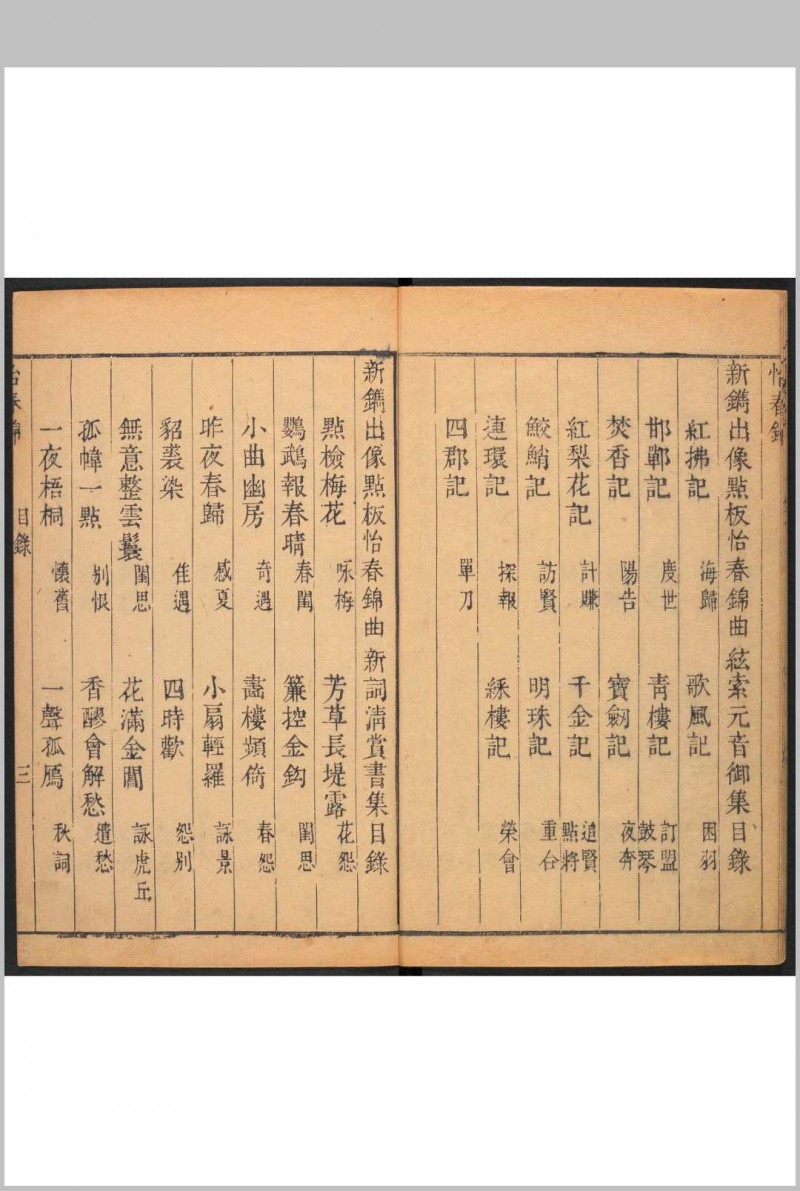 怡春錦
新鐫出像點板怡春錦曲 絃索元音御集目錄
紅拂記 海歸 歌風記 困羽
邯鄲記 度世 青樓記 訂盟 鼓琴
焚香記 陽告 寶劒記 夜奔
紅梨花記 計賺 千金記 追賢 點將
鮫鮹記 訪賢 明珠記 重合
連環記 探報 綵樓記 榮會
四郡記 單刀
新鐫出像點板怡春錦曲 新詞清賞書集目錄
點檢梅花 咏梅 芳草長堤露 花怨
鸚鵡報春晴 春閨 簾控金鈎 閨思
小曲幽房 奇遇 畵樓頻倚 春怨
昨夜春歸 感夏 小扇輕羅 詠景
貂裘染 佳遇 四時歡 怨別
無意整雲鬟 閨思 花滿金閶 詠虎丘
孤幃一點 別恨 香醪會解愁 遣愁
一夜梧桐 懷舊 一聲孤鴈 秋詞
怡春錦 目錄 三